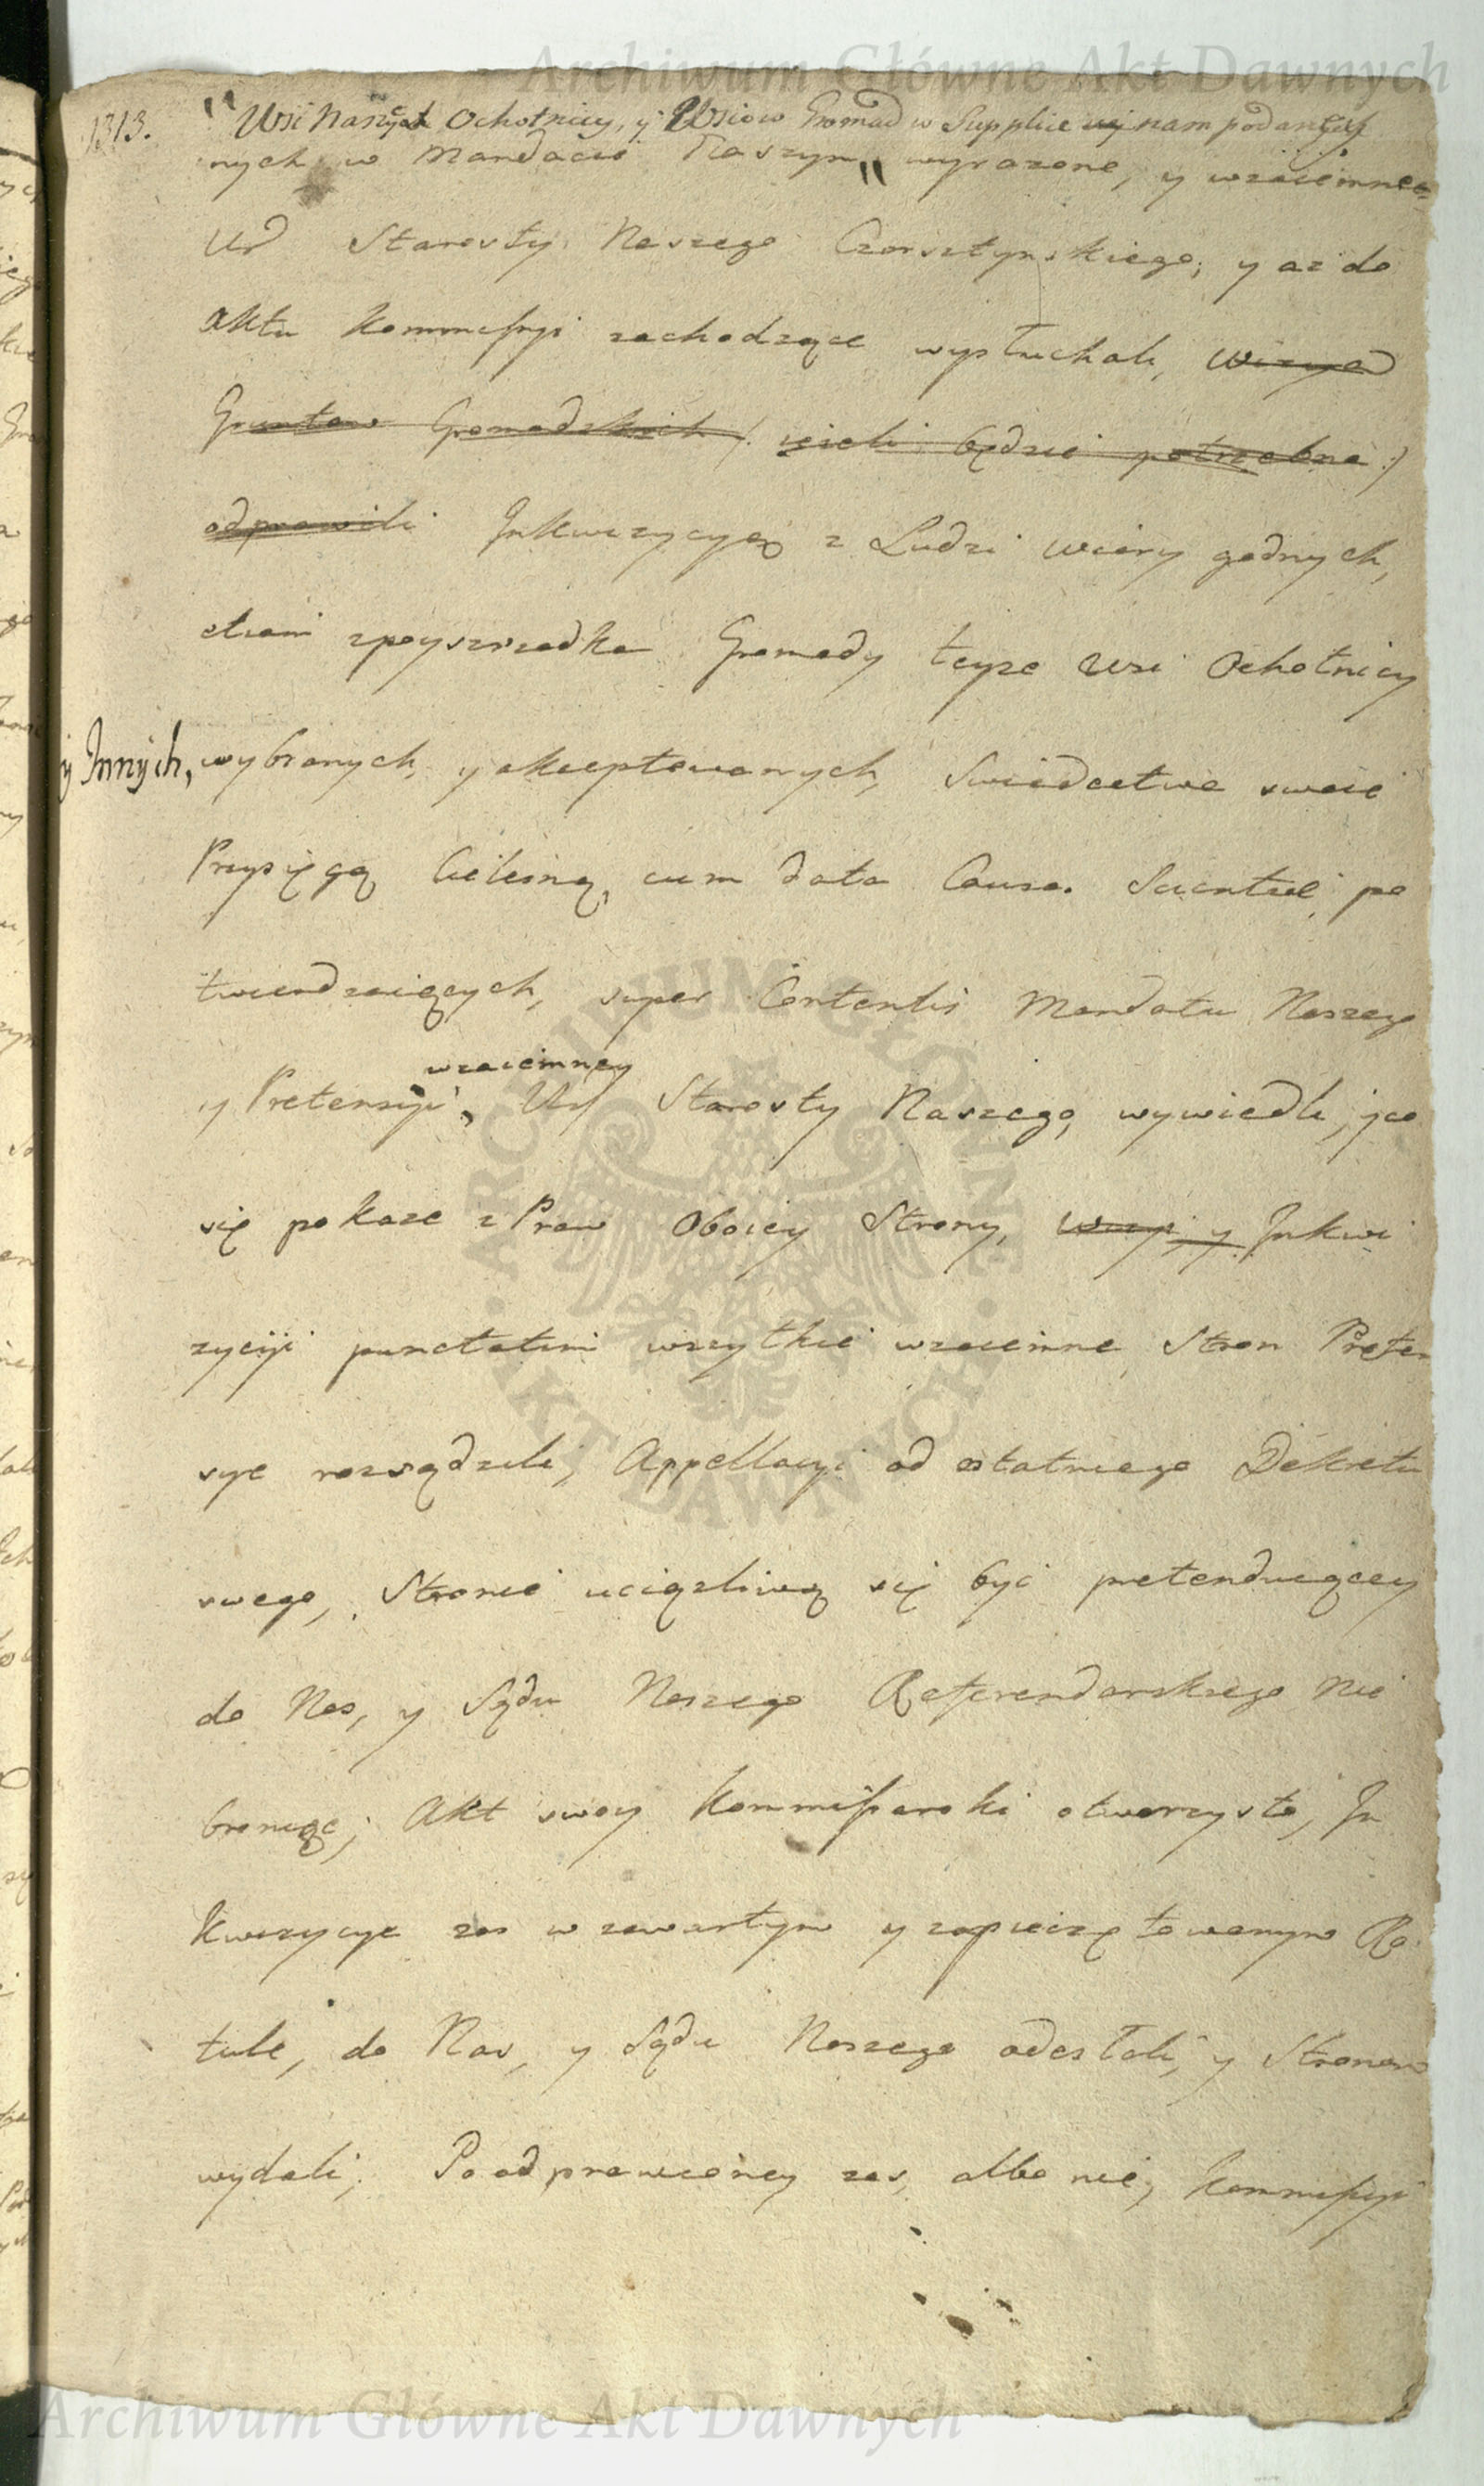 Archiwum Główne Akt Dawnych
1313.
" Wsi Naszych Ochotnicy, y Wsiow Gromad w Supplice nam podaney
nych w Mandacie Naszym " wyrazone, y wzaiemne
Ur Starosty Naszego Czorsztynskiego, y az do
Aktu Kommissyi zachodzące wysłuchali, Wizyą
Gruntow Gromadzkich /: ieżeli będzie potrzebna :/
odprawili Inkwizycyą z Ludzi wiary godnych,
etiam zpoyszrzodka Gromady teyze Wsi Ochotnicy
y Innych, wybranych, y akceptowanych, Swiadectwa swoie
Przysięgą Cielesną, cum data Causa Scientiæ po
twierdzaiących, super Contentis Mandatu Naszego
wzaiemney
y Pretensyi, Ur Starosty Naszego, wywiedli, y co
się pokaze z Praw Oboiey Strony, Wizyi y Inkwi
zycyi punctatim wszytkie wzaiemne Stron Preten
sye rozsądzili, Appellacyi od ostatniego Dekretu
swego, Stronie uciązliwą się być pretenduiącey
do Nas, y Sądu Naszego Referendarskiego nie
broniąc; Akt swoy Kommissarski otworzysto, In
kwizycye zas w zawartym y zapieczętowanym Ro
tule, do Nas, y Sądu Naszego odesłali, y Stronom
wydali; Po odprawioney zas, albo nie, Kommissyi
ARCHIWUM GŁÓWNE • AKT DAWNYCH •
Archiwum Główne Akt Dawnych